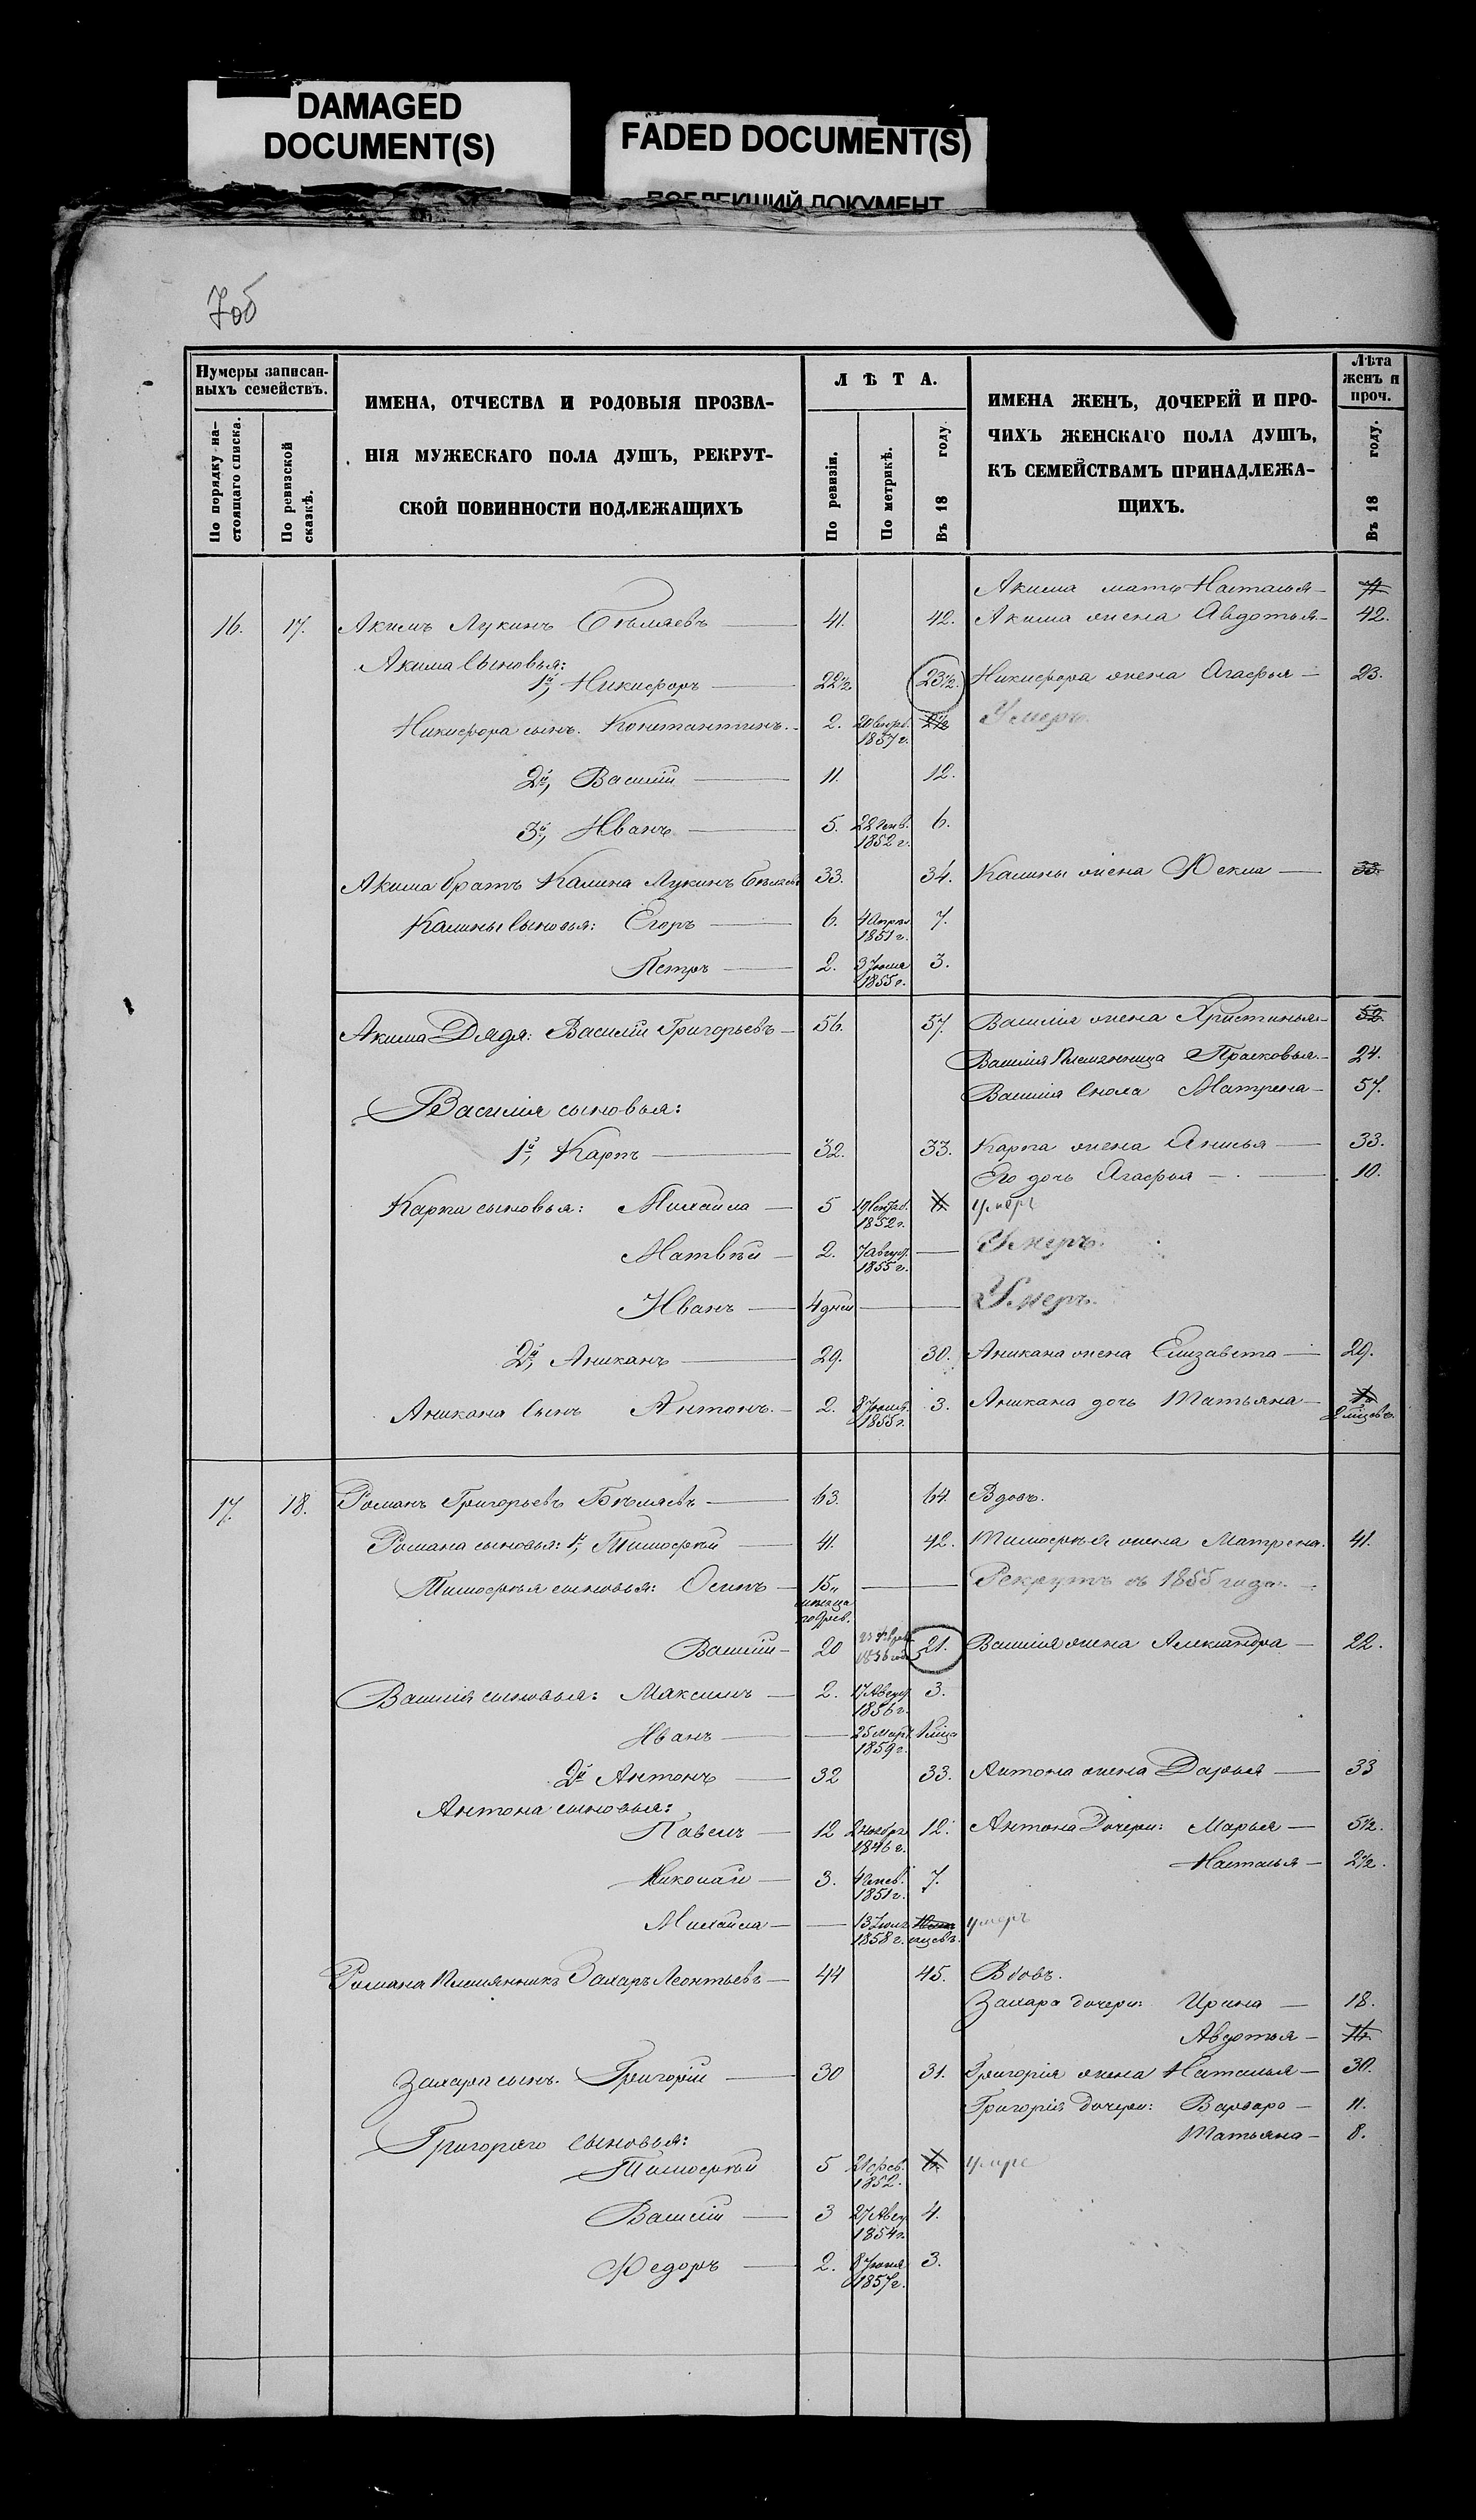 DAMAGED
DOCUMENT(S)
FADED DOCUMENT(S)
ПОБЛЕКШИЙ ДОКУМЕНТ
7об
Нумеры записан-
ныхъ семействъ.
По порядку на-
стоящаго списка.
По ревизской
сказкѣ.
ИМЕНА, ОТЧЕСТВА И РОДОВЫЯ ПРОЗВА-
НІЯ МУЖЕСКАГО ПОЛА ДУШЪ, РЕКРУТ-
СКОЙ ПОВИННОСТИ ПОДЛЕЖАЩИХЪ
ЛѢТА.
По ревизіи.
По метрикѣ.
Въ 18 году.
ИМЕНА ЖЕНЪ, ДОЧЕРЕЙ И ПРО-
ЧИХЪ ЖЕНСКАГО ПОЛА ДУШЪ,
КЪ СЕМЕЙСТВАМЪ ПРИНАДЛЕЖА-
ЩИХЪ.
Лѣта
женъ и
проч.
Въ 18 году.
Акима мать Наталья
16. 17. Акимъ Лукинъ Бѣляевъ 41. 42. Акима жена Авдотья 42.
Акима сыновья:
1й, Никифоръ 22½ 23½. Никифора жена Агафья 23.
Никифора сынъ. Константинъ. 2. 20 1857 г. 2½ Умеръ.
2й, Василій 11. 12.
3й, Иванъ 5. 28 Генв. 1852 г. 6.
Акима братъ Калина Лукинъ Бѣляевъ 33. 34. Калины жена Фекла 33.
Калины сыновья: Егоръ 6. 4 Апрѣл. 1851 г. 7.
Петръ 2. 3 1855 г. 3.
Акима Дядя: Василій Григорьевъ 56. 57. Василія жена Христинья 52.
Василія Племянница Прасковья 24.
Василія сноха Матрена 57.
Василія сыновья:
1й, Карпъ 32. 33. Карпа жена Анисья 33.
Его дочь Агафья 10.
Карпа сыновья: Михайла 5 19 Сентяб. 1852 г. умеръ
Матвѣй 2. 7 Август. 1855 г. Умеръ.
Иванъ 4 дней Умеръ.
2й, Аниканъ 29. 30. Аникана жена Елизавета 29.
Аникана сынъ Антонъ. 2. 8 1855 г. 3. Аникана дочь Татьяна
17. 18. Романъ Григорьевъ Бѣляевъ 63. 64. Вдовъ.
Романа сыновья: 1й, Тимофей 41. 42. Тимофея жена Матрена. 41.
Тимофея сыновья: Осипъ 15 Рекрутъ въ 1855 году.
Василій 20 21. Василія жена Александра 22.
Василія сыновья: Максимъ 2. 17 Август. 1856 г. 3.
Иванъ 25 Март. 1859 г.
2й Антонъ 32 33. Антона жена Дарья 33
Антона сыновья:
Павелъ 12 2 Ноября 1846 г. 12. Антона Дочери: Марья 5½.
Наталья 2½.
Николай 3. 1851 г. 7.
Михайла 13 1858 г. умеръ
Романа Племянникъ Захаръ Леонтьевъ 44 45. Вдовъ.
Захара дочери: Ирина 18.
Авдотья
Захара сынъ. Григорій 30 31. Григорія жена Наталья 30.
Григорія дочери: Варвара 11.
Татьяна 8.
Григорія сыновья:
Тимофей 5 21 фев. 1852. умре
Василій 3 27 Авгу. 1854 г. 4.
Федоръ 2. 8 1857 г. 3.